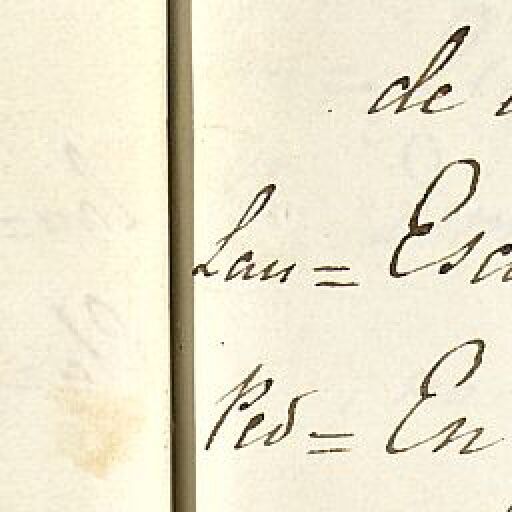 de
Lau = Esc
Ped = En